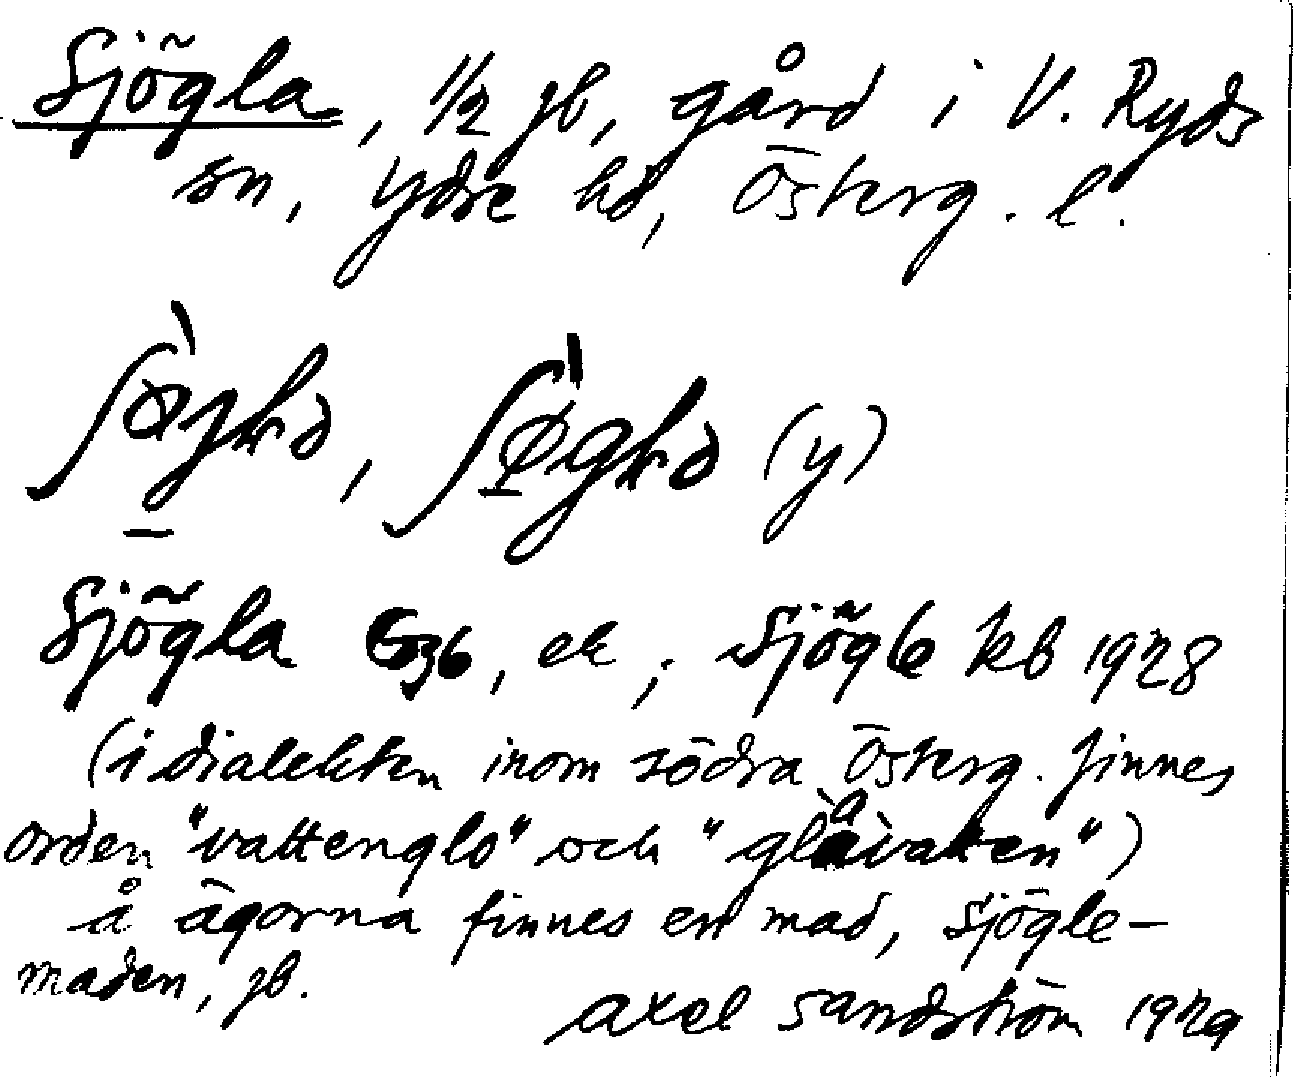 Sjögla, 1/2 jb, gård i V. Ryds
sn, Ydre hd, Österg. l.
(y)
Sjögla G36, ek; Sjögle kb 1928
(i dialekten inom södra Österg. finnes
orden "vattenglo" och "glåvatten")
å ägorna finnes en mad, Sjögle-
maden, jb.
Axel Sandström 1929